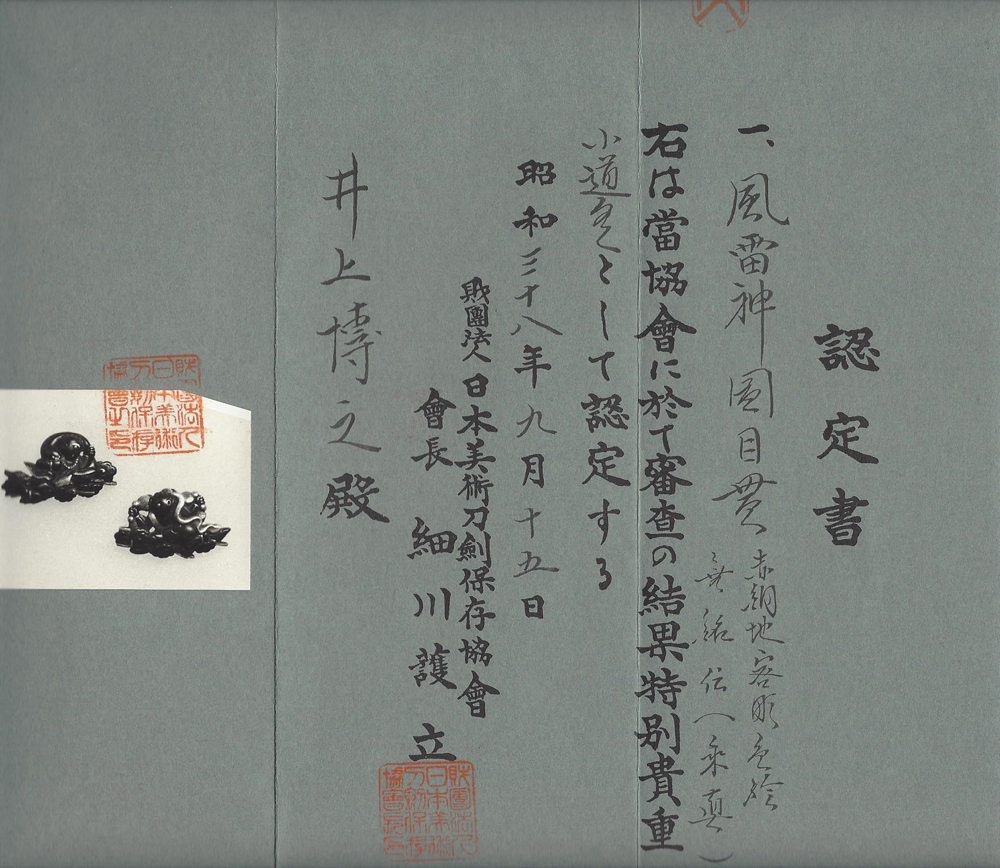 認定書
一、風雷神図目貫 赤銅地容彫色絵
無銘 伝（乗真）
右は當協會に於て審査の結果特別貴重
小道具として認定する
昭和三十八年九月十五日
財團法人日本美術刀劍保存協會
會長 細川護立
井上博之殿
財團法人日本美術刀劍保存協會之印
財團法人日本美術刀劍保存協會長印